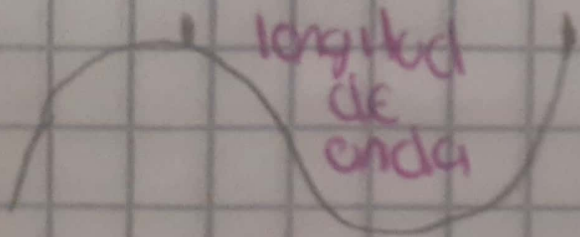 longitud
de
onda